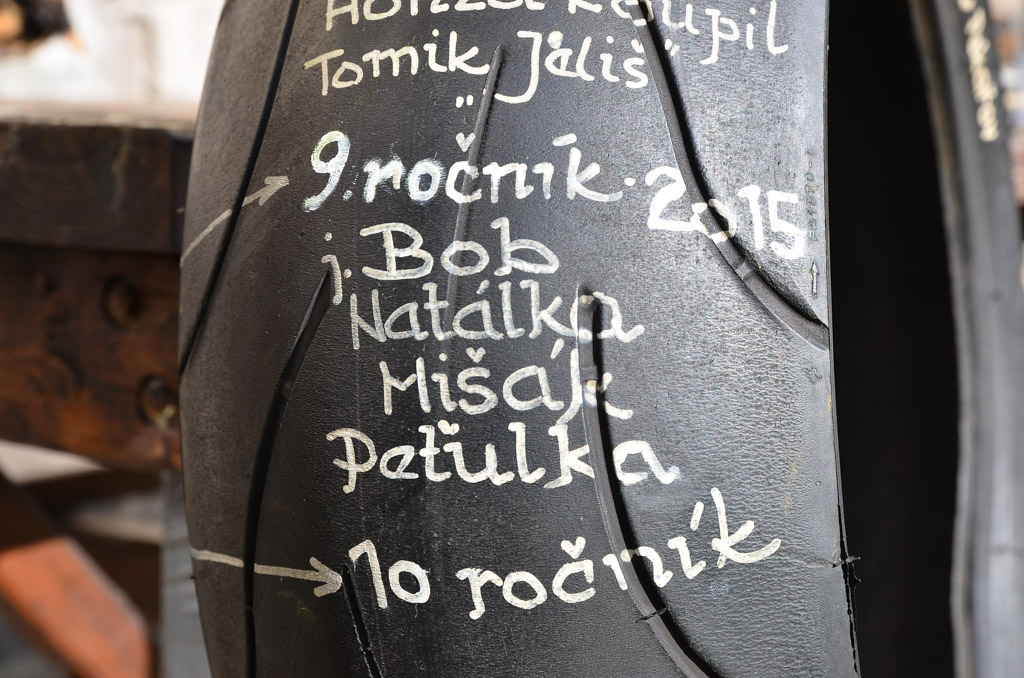 Honza Koupil
Tomik Jališ
9. ročník. 2015
j. Bob
Natálka
Mišák
Peťulka
10 ročník